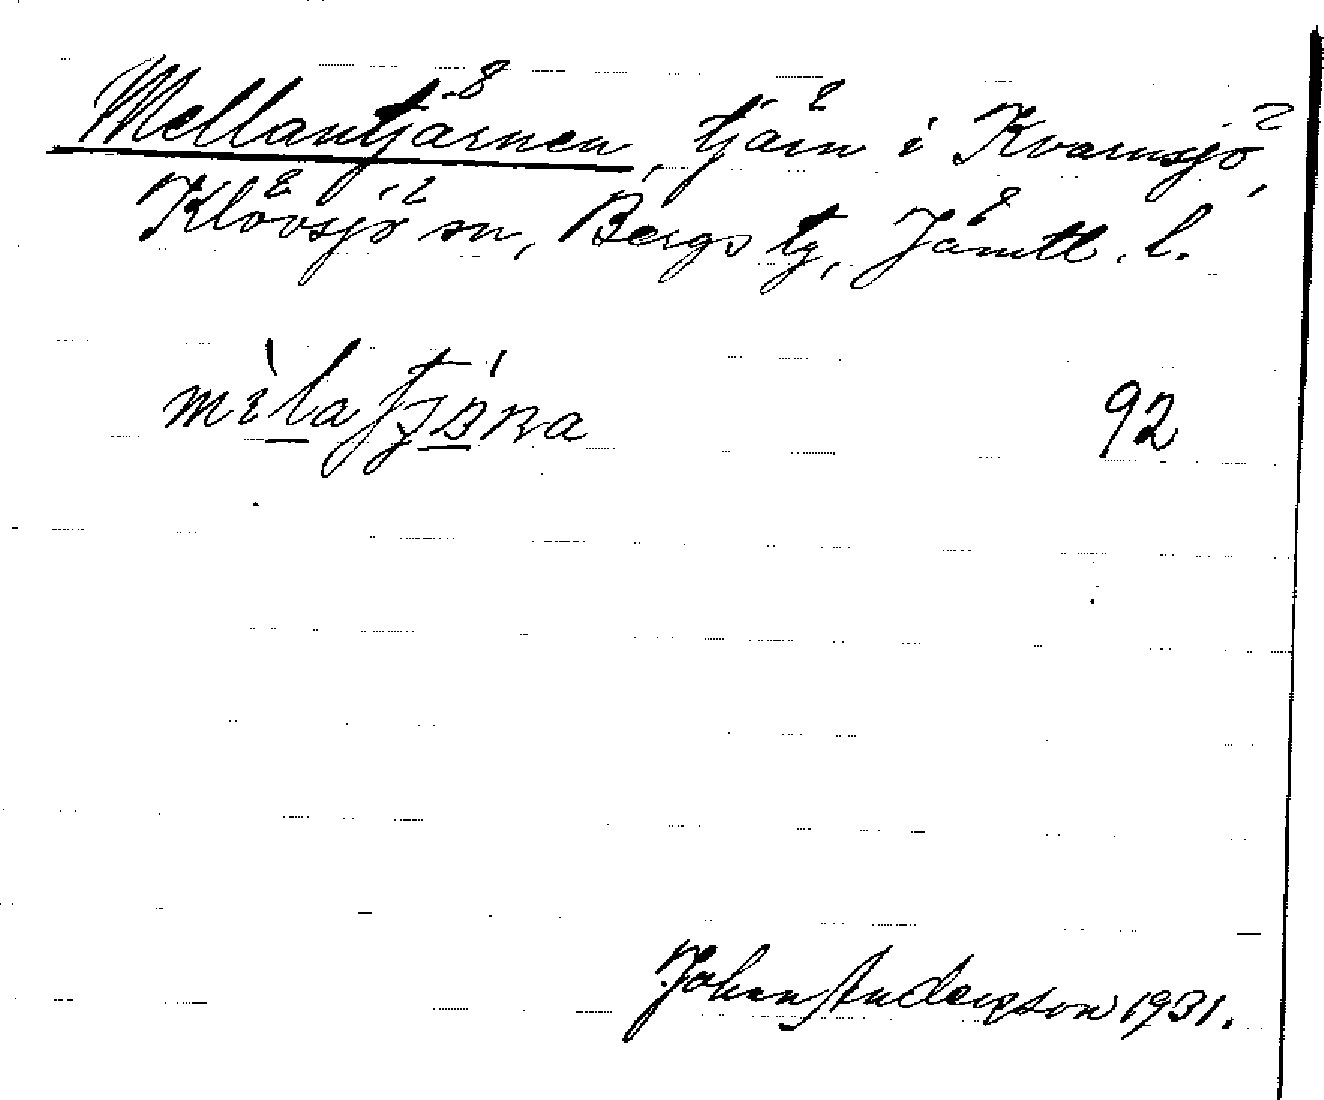 Mellantjärnen, tjärn i Kvarnsjö,
Klövsjö sn, Bergs tg, Jämtl. l.
92
Johan Anderson 1931.